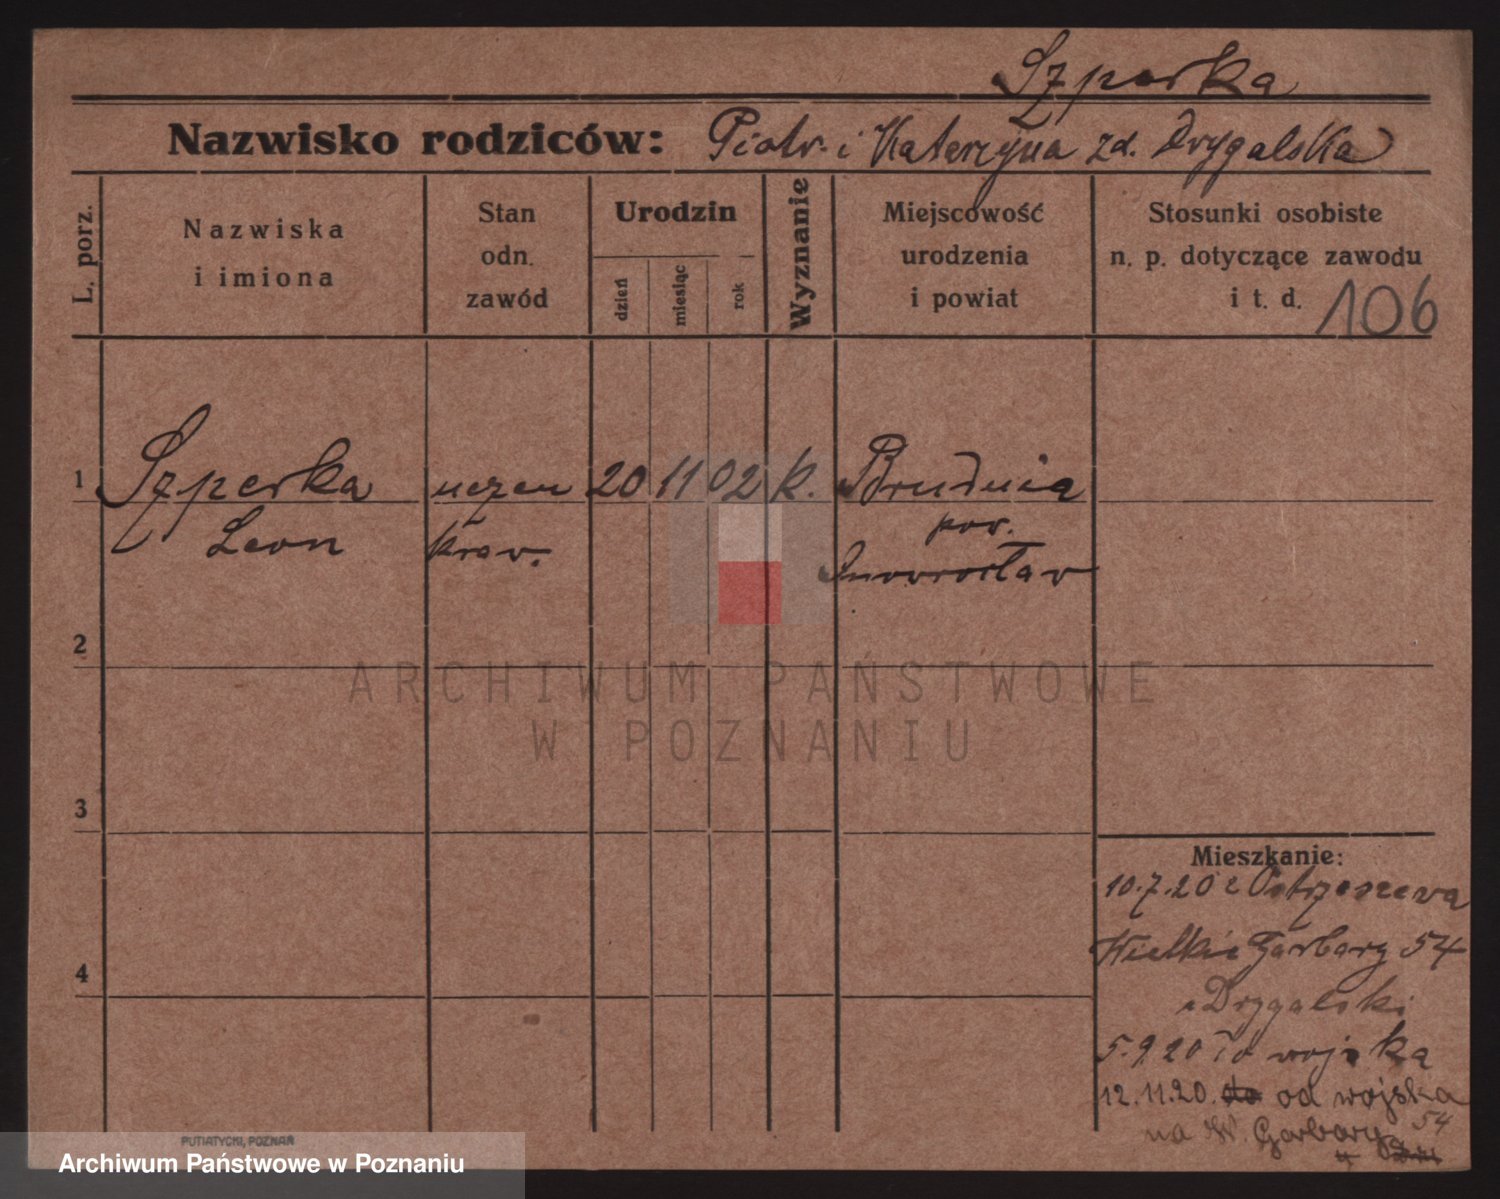 Szperka
Nazwisko rodziców: Piotr i Katarzyna zd. Drygalska
L. porz.
Nazwiska
i imiona
Stan
odn.
zawód
Urodzin
dzień
miesiąc
rok
Wyznanie
Miejscowość
urodzenia
i powiat
Stosunki osobiste
n. p. dotyczące zawodu
i t. d. 106
1 Szperka uczeń 20 11 02 k. Brudnia
Leon kraw. pow.
Inowrocław
2
ARCHIWUM PAŃSTWOWE
W POZNANIU
3
Mieszkanie:
10.7.20 z Ostrzeszewa
Wielkie Garbary 54
4
Drygalski
5.9.20 do wojska
12.11.20. od wojska
na W. Garbary 54
PUTIATYCKI, POZNAŃ
Archiwum Państwowe w Poznaniu